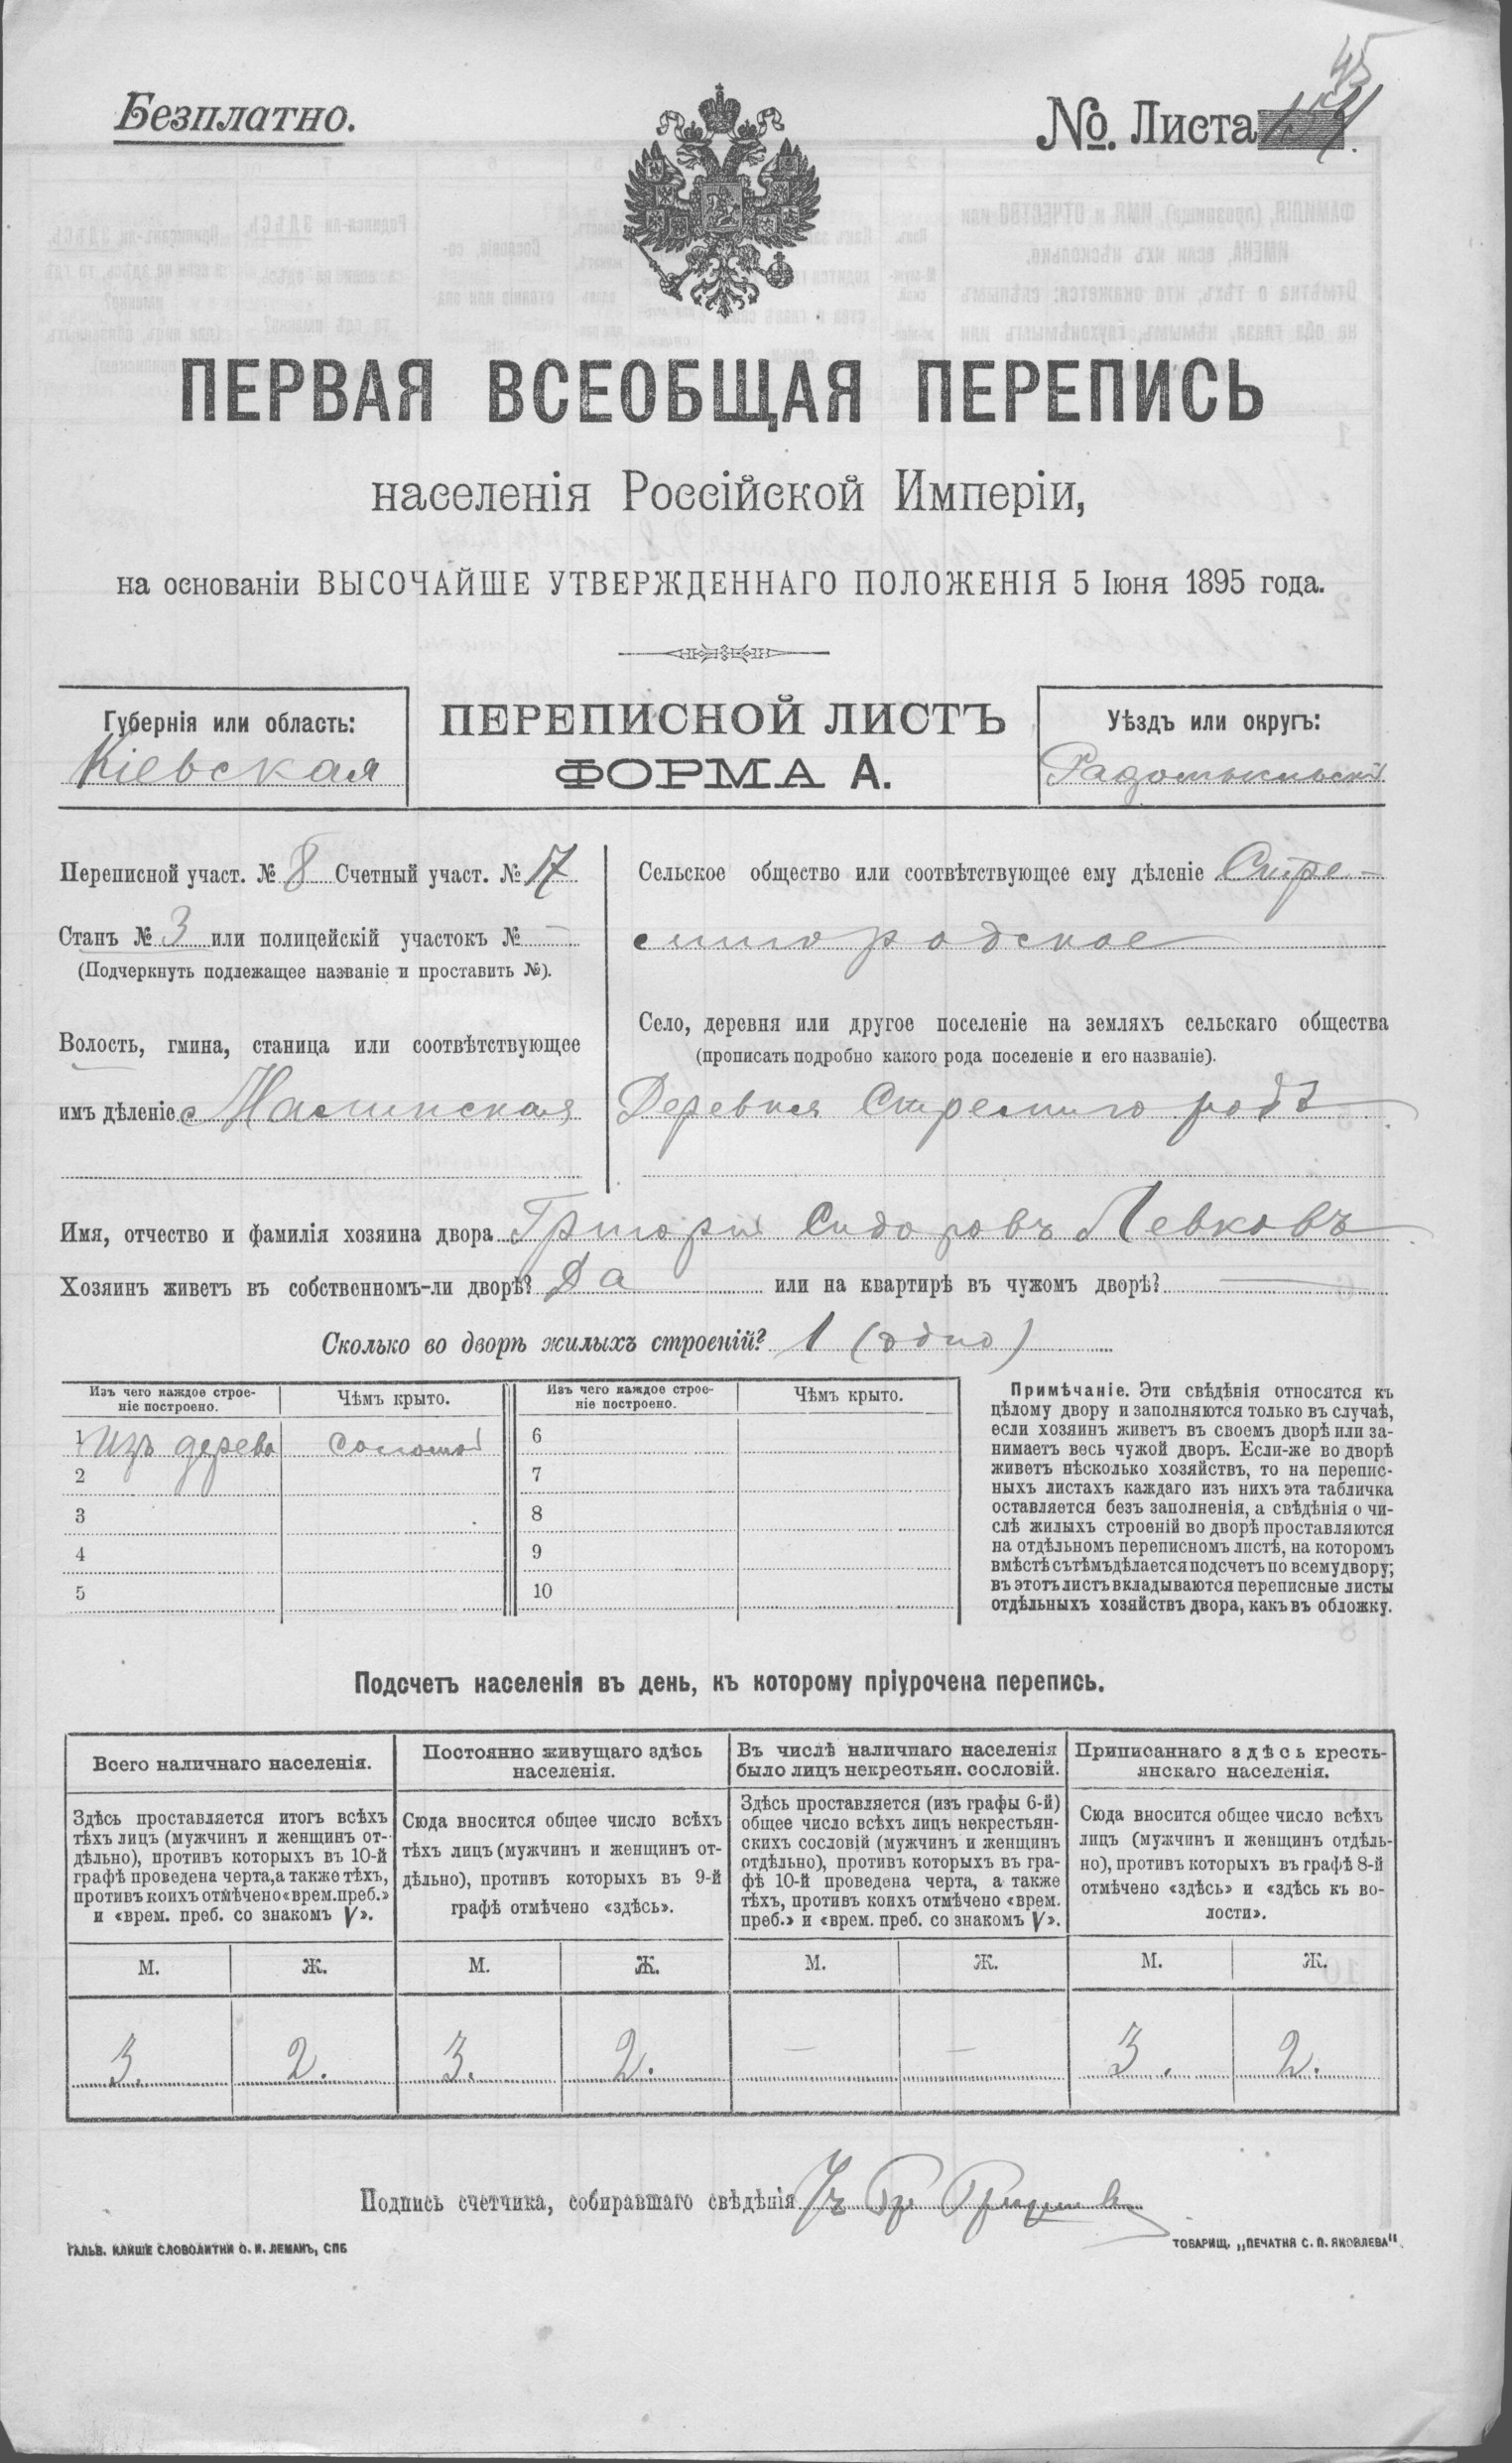 Безплатно.
№ Листа
45
ПЕРВАЯ ВСЕОБЩАЯ ПЕРЕПИСЬ
населенія Россійской Имперіи,
на основаніи ВЫСОЧАЙШЕ УТВЕРЖДЕННАГО ПОЛОЖЕНІЯ 5 Іюня 1895 года.
Губернія или область:
Кіевская
ПЕРЕПИСНОЙ ЛИСТЪ
ФОРМА А.
Уѣздъ или округъ:
Радомысльскій
Переписной участ. № 8 Счетный участ. № 17
Станъ № 3 или полицейскій участокъ № —
(Подчеркнуть подлежащее названіе и проставить №).
Волость, гмина, станица или соотвѣтствующее
имъ дѣленіе
Сельское общество или соотвѣтствующее ему дѣленіе Стре-
мигородское
Село, деревня или другое поселеніе на земляхъ сельскаго общества
(прописать подробно какого рода поселеніе и его названіе).
Деревня Стремигородъ
Имя, отчество и фамилія хозяина двора Григорій Сидоровъ Левковъ
Хозяинъ живетъ въ собственномъ-ли дворѣ? Да или на квартирѣ въ чужомъ дворѣ? —
Сколько во дворѣ жилыхъ строеній? 1 (одно)
Изъ чего каждое строе-
ніе построено.
Чѣмъ крыто.
1 Изъ дерева соломой
2
3
4
5
Изъ чего каждое строе-
ніе построено.
Чѣмъ крыто.
6
7
8
9
10
Примѣчаніе. Эти свѣдѣнія относятся къ
цѣлому двору и заполняются только въ случаѣ,
если хозяинъ живетъ въ своемъ дворѣ или за-
нимаетъ весь чужой дворъ. Если-же во дворѣ
живетъ нѣсколько хозяйствъ, то на перепис-
ныхъ листахъ каждаго изъ нихъ эта табличка
оставляется безъ заполненія, а свѣдѣнія о чи-
слѣ жилыхъ строеній во дворѣ проставляются
на отдѣльномъ переписномъ листѣ, на которомъ
вмѣстѣ сътѣмъ дѣлается подсчетъ по всему двору;
въ этотъ листъ вкладываются переписные листы
отдѣльныхъ хозяйствъ двора, какъ въ обложку.
Подсчетъ населенія въ день, къ которому пріурочена перепись.
Всего наличнаго населенія.
Здѣсь проставляется итогъ всѣхъ
тѣхъ лицъ (мужчинъ и женщинъ от-
дѣльно), противъ которыхъ въ 10-й
графѣ проведена черта, а также тѣхъ,
противъ коихъ отмѣчено «врем. преб.»
и «врем. преб. со знакомъ V».
М. Ж.
3. 2.
Постоянно живущаго здѣсь
населенія.
Сюда вносится общее число всѣхъ
тѣхъ лицъ (мужчинъ и женщинъ от-
дѣльно), противъ которыхъ въ 9-й
графѣ отмѣчено «здѣсь».
М. Ж.
3. 2.
Въ числѣ наличнаго населенія
было лицъ некрестьян. сословій.
Здѣсь проставляется (изъ графы 6-й)
общее число всѣхъ лицъ некрестьян-
скихъ сословій (мужчинъ и женщинъ
отдѣльно), противъ которыхъ въ гра-
фѣ 10-й проведена черта, а также
тѣхъ, противъ коихъ отмѣчено «врем.
преб.» и «врем. преб. со знакомъ V».
М. Ж.
— —
Приписаннаго здѣсь кресть-
янскаго населенія.
Сюда вносится общее число всѣхъ
лицъ (мужчинъ и женщинъ отдѣль-
но), противъ которыхъ въ графѣ 8-й
отмѣчено «здѣсь» и «здѣсь къ во-
лости».
М. Ж.
3. 2.
Подпись счетчика, собиравшаго свѣдѣнія
ГАЛЬВ. КЛИШЕ СЛОВОЛИТНИ О. И. ЛЕМАНЪ, СПБ
ТОВАРИЩ. „ПЕЧАТНЯ С. П. ЯКОВЛЕВА".